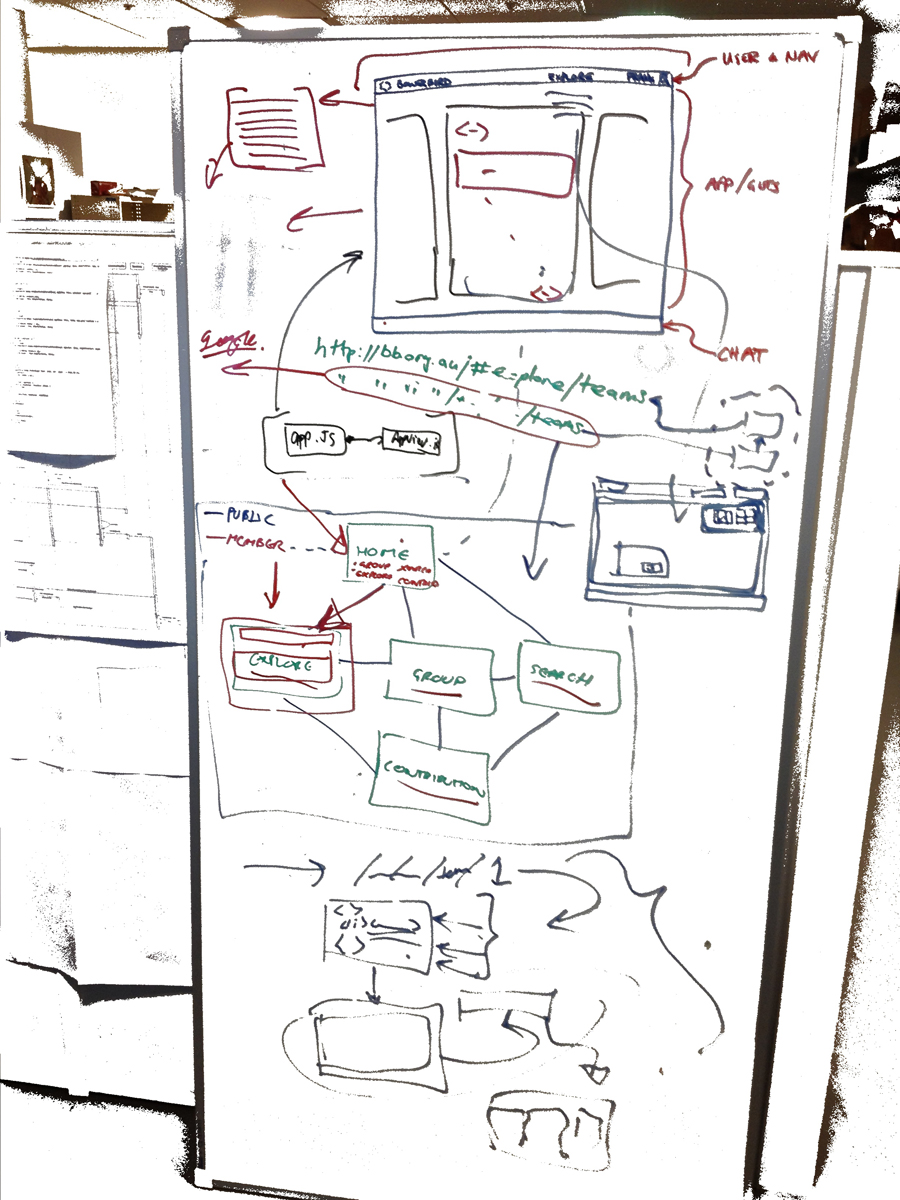 USER & NAV
EXPLORE
APP/GUTS
CHAT
Google.
http://bb.org.au/#explore/teams
" " " " /teams
app.JS
PUBLIC
MEMBER
HOME
GROUP
EXPLORE
EXPLORE
GROUP
SEARCH
CONTRIBUTION
1